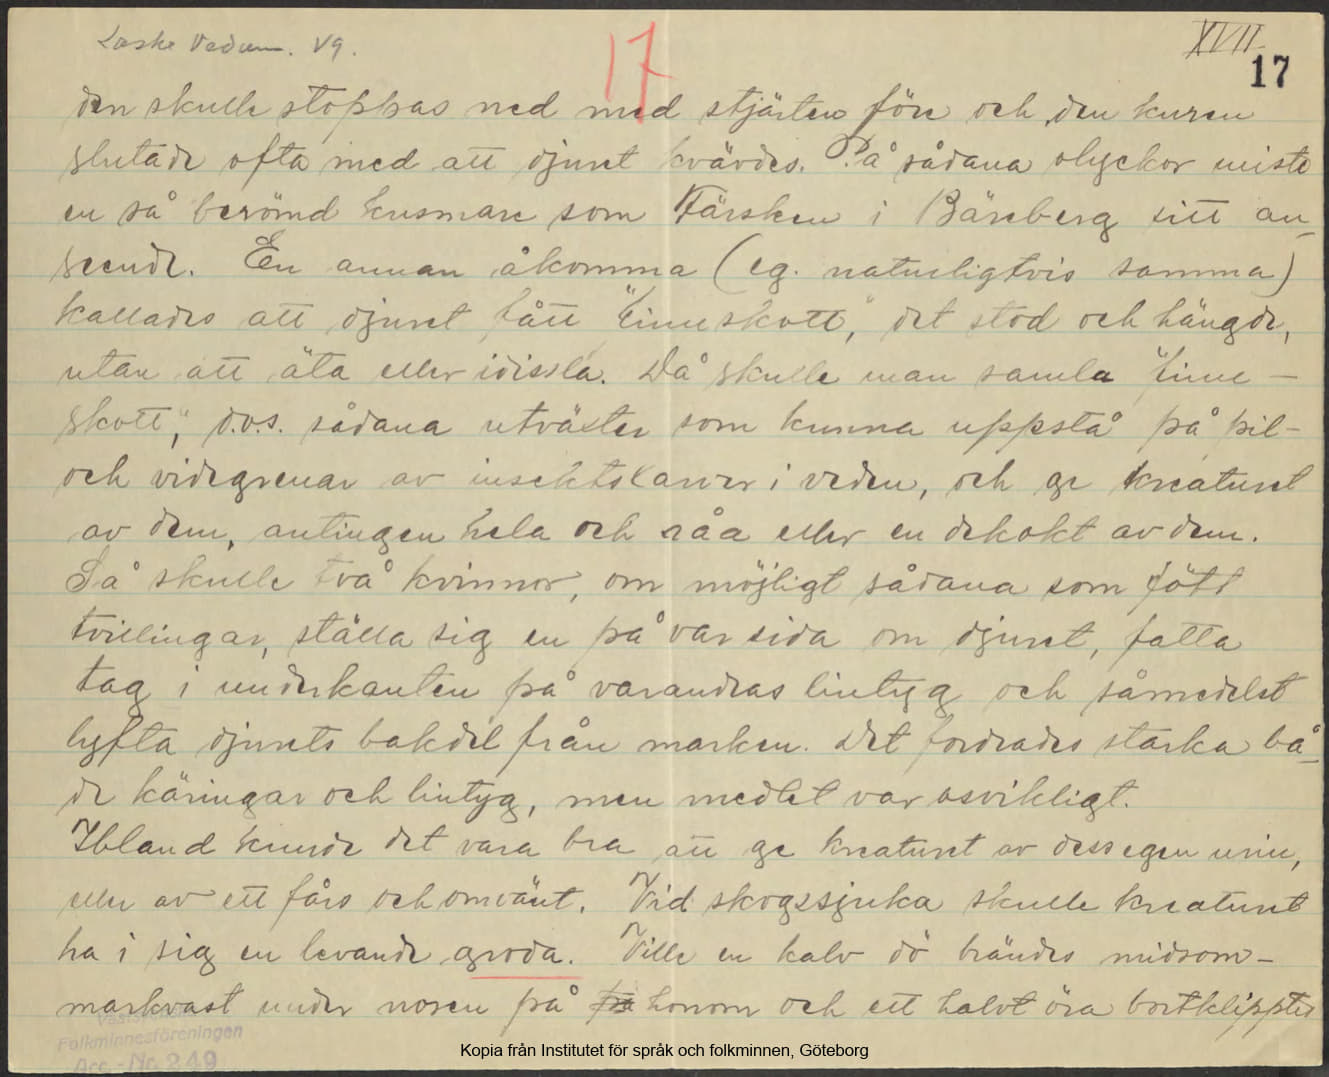 Laske Vedum. Vg.
17
XVII
17
den skulle stoppas ned med stjärten före och den kuren
slutade ofta med att djuret kvävdes. På sådana olyckor miste
en så berömd kusmare som Färsken i Bäreberg sitt an-
seende. En annan åkomma (eg. naturligtvis samma)
kallades att djuret fått "finneskott", det stod och hängde,
utan att äta eller idissla. Då skulle man samla "finne-
skott", d.v.s. sådana utväxter som kunna uppstå på pil-
och videgrenar av insektslarver i veden, och ge kreaturet
av dem, antingen hela och råa eller en dekokt av dem.
Så skulle två kvinnor, om möjligt sådana som fött
tvillingar, ställa sig en på var sida om djuret, fatta
tag i underkanten på varandras lintyg och såmedelst
lyfta djurets bakdel från marken. Det fordrades starka bå-
de käringar och lintyg, men medlet var osvikligt.
Ibland kunde det vara bra att ge kreaturet av dess egen urin,
eller av ett fårs och omvänt. Vid skogssjuka skulle kreaturet
ha i sig en levande groda. Ville en kalv dö brändes midsom-
markvast under nosen på honom och ett halvt öra bortklipptes
Folkminnesföreningen
Acc.-Nr. 249
Kopia från Institutet för språk och folkminnen, Göteborg